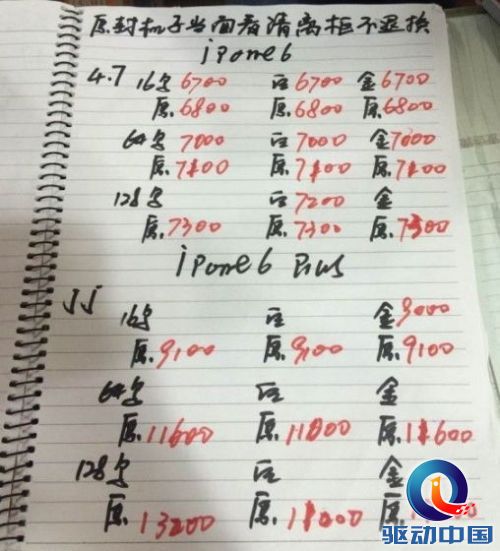 原封机子当面看清离柜不退换
iPone6
4.7 16G 6700 白 6700 金 6700
原.6800 原.6800 原.6800
64G 7000 白 7000 金 7000
原.7100 原.7100 原.7100
128G 白 7200 金
原.7300 原.7300 原.7300
iPone6 Plus
16G 白 金 9000
原.9100 原.9100 原.9100
64G 白 金
原.11600 原.11600 原.11600
128G 白 金
原.13200 原. 原.
驱动中国